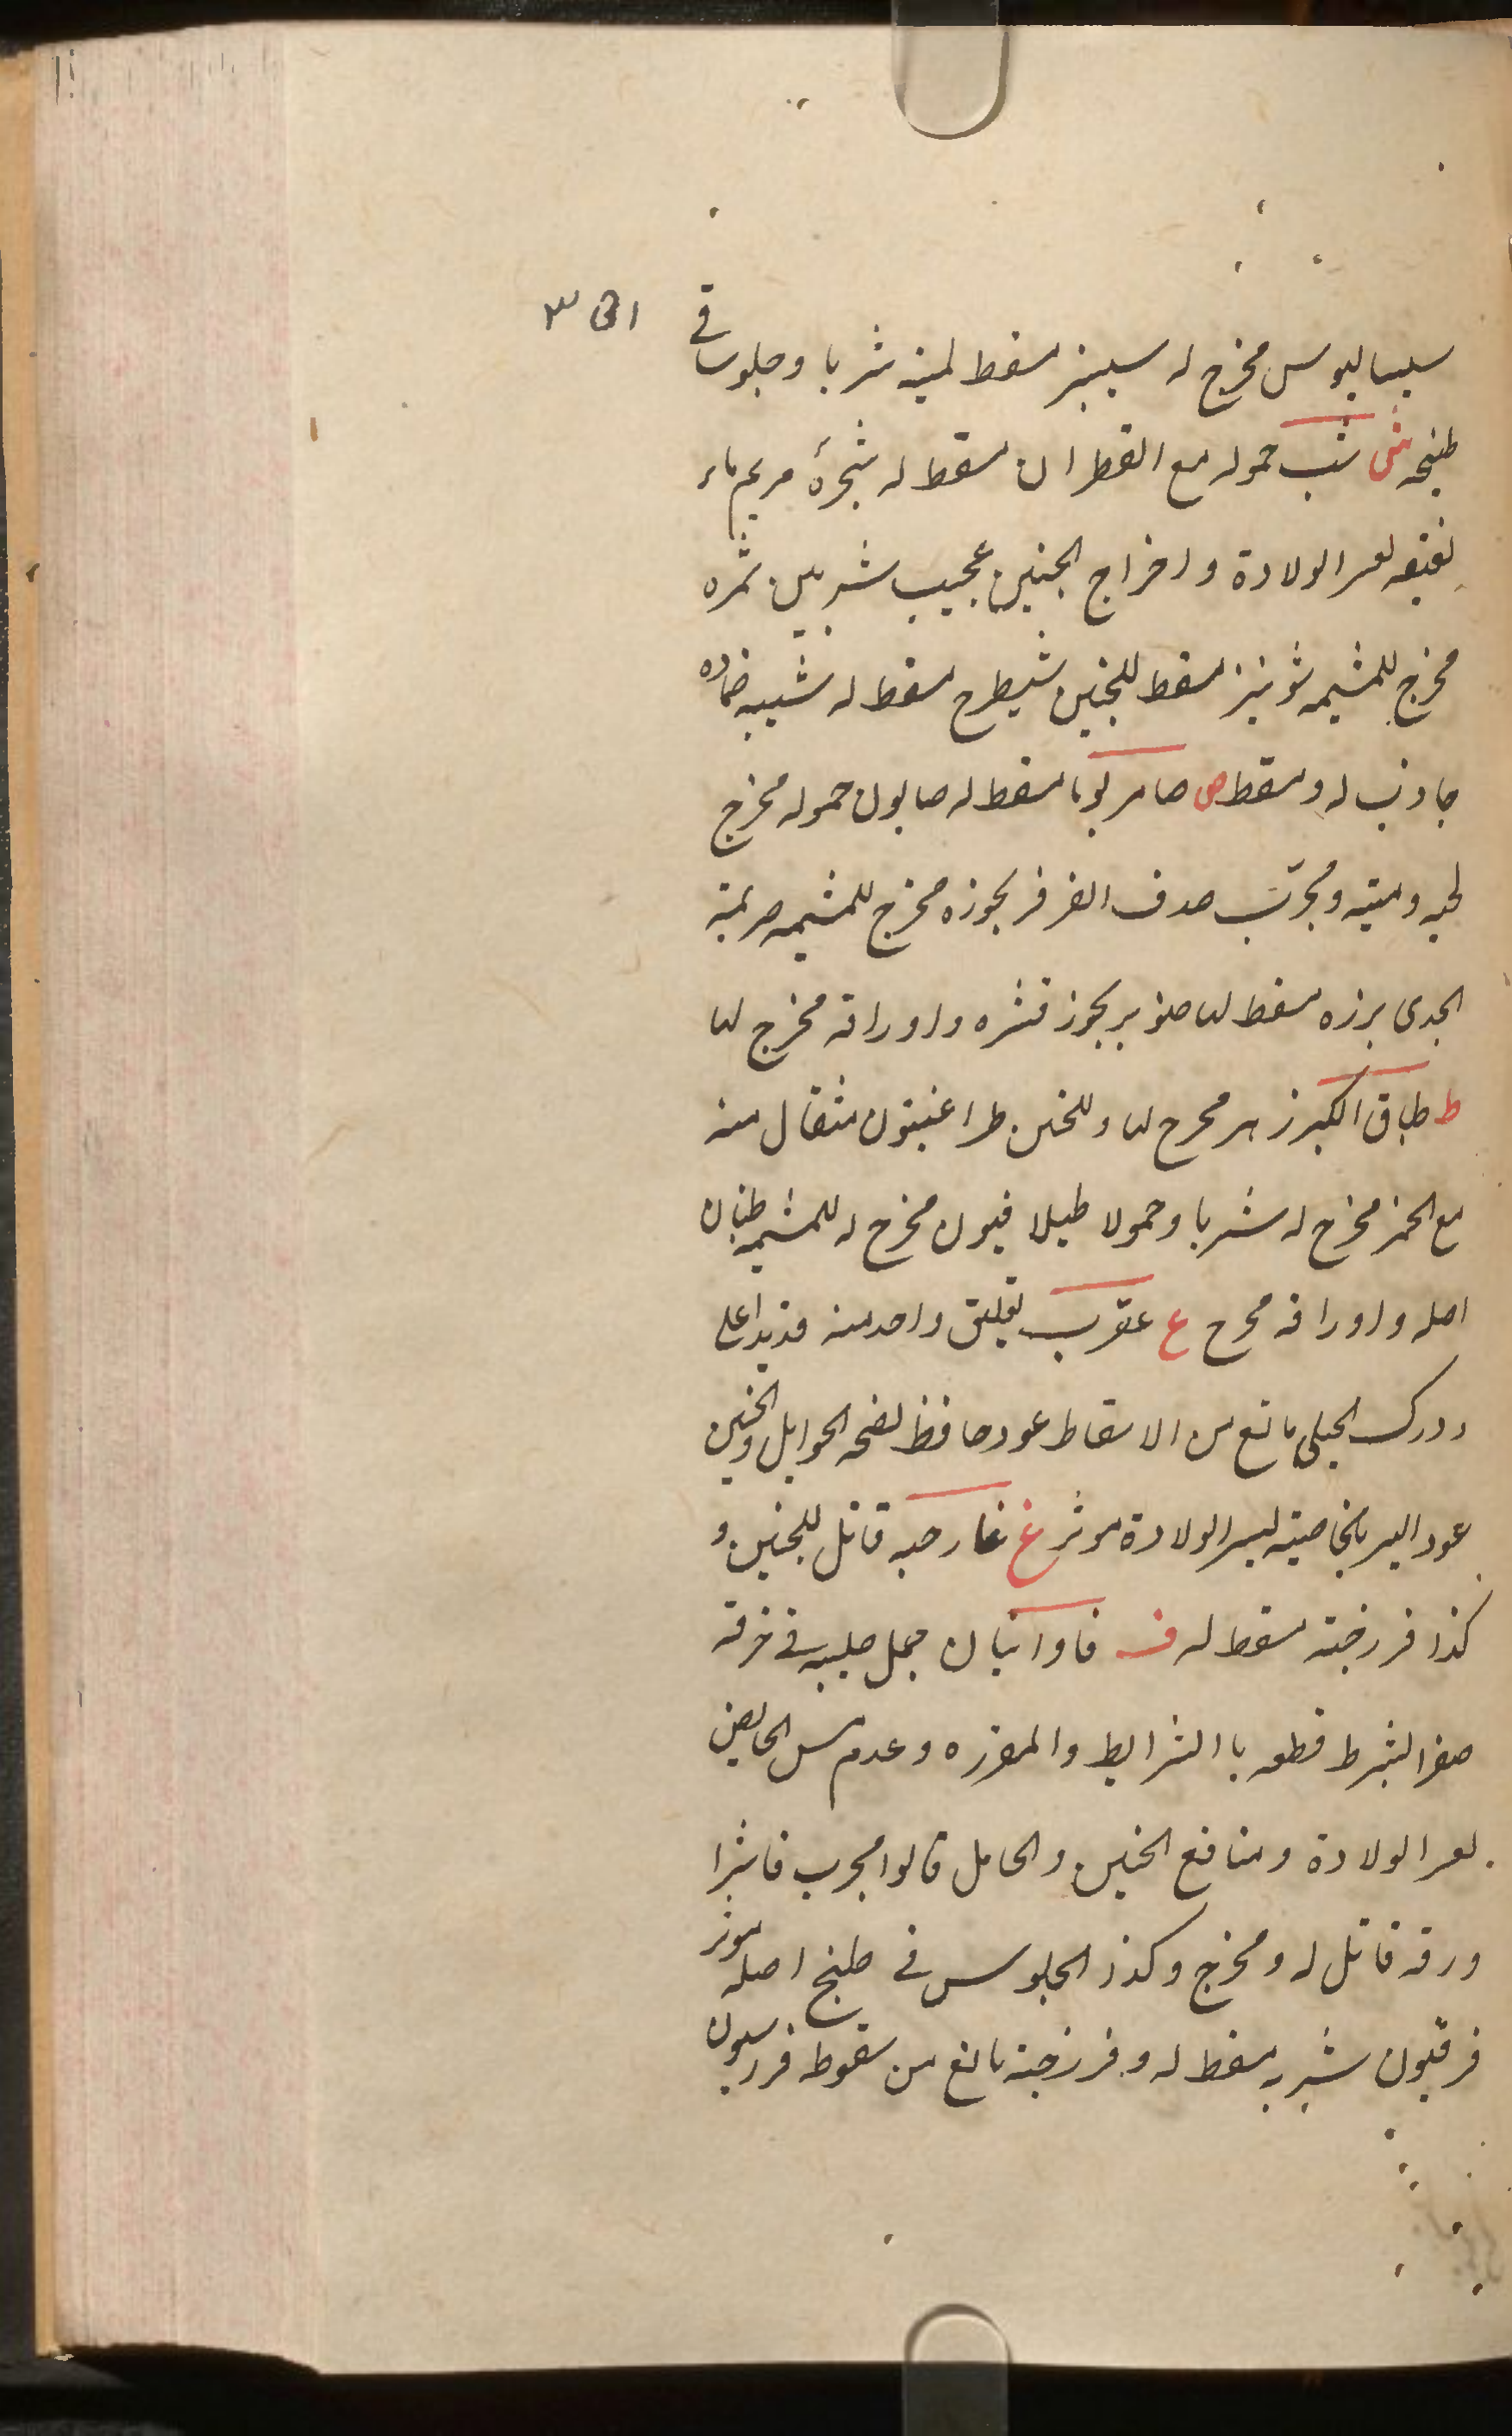 سیسالیوس مخرج له سیبنر مسقط لمیته شربا وجلوسا فے
طبیخه ش شب حموله مع القطران مسقط له شجرهٔ مریم ماء
لعسر الولادة واخراج الجنین عجیب شربین ثمره
مخرج للمشیمه شونیز مسقط للجنین شیطرج مسقط له شیبه ضماده
جاذب له ومسقط ص صامریوما مسقط له صابون حموله مخرج
لحیه ومیته ومجرّب صدف الفرفر بخوره مخرج للمشیمه صریمة
الجدی بزره مسقط لها صنوبر بخور قشره واوراقه مخرج لها
ط طباق الکبر زهر مخرج لها وللجنین طراغیون مثقال منه
مع الخمر مخرج له شربا وحمولا طیلافیون مخرج له للمشیمه
اصله واوراقه مخرج ع عقرب تعلیق واحد منه
ورک الحبلی مانع من الاسقاط عود حافظ لصحه الحوامل والجنین
عود الیسر بالخاصیته لیسر الولادة موثر غ غار حبه قاتل للجنین و
کذا فرزجته مسقط له ف فاوانیا ان جمل صلیبه فے خرقة
قطعه با الشرایط والمقرره وعدم مس الحایض
لعسر الولادة ومنافع الجنین والحامل قالوا مجرب فاشرا
ورقه قاتل له ومخرج وکذا الجلوس فے طبیخ اصله موثر
شربه مسقط له وفرزجته مانع من سقوط